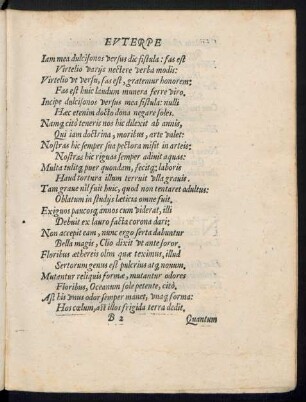 EVTERPE
Iam mea dulcisonos versus dic fistula: fas est
Virtelio varijs nectere verba modis:
Virtelio vt versu, fas est, gratemur honorem:
Fas est huic laudum munera ferre viro,
Incipe dulcisonos versus mea fistula: nulli
Hæc etenim docto dona negare soles.
Namq́; cito teneris nos hic dilexit ab annis,
Qui iam doctrina, moribus, arte valet:
Nostras hic semper sua pectora misit in arteis:
Nostras hic rigua semper adiuit aquas:
Multa tulitq́; puer quondam, fecitq́; laboris
Haud tortura illum terruit vlla grauis.
Tam graue nil fuit huic, quod non tentaret adultus:
Oblatum in studijs lætitia omne fuit.
Exiguos paucosq́; annos cum viderat, illi
Debuit ex lauro facta corona dari;
Non accepit eam, nunc ergo serta dabuntur
Bella magis, Clio dixit vt ante soror,
Floribus æthereis olim quæ teximus, illud
Sertorum genus est pulcrius atq́; nouum,
Mutantur reliquis formæ, mutantur odores
Floribus, Oceanum sole petente, citò,
Ast his vnus odor semper manet, vnaq́; forma:
Hos cœlum, ast illos frigida terra dedit.
B 2 Quantum